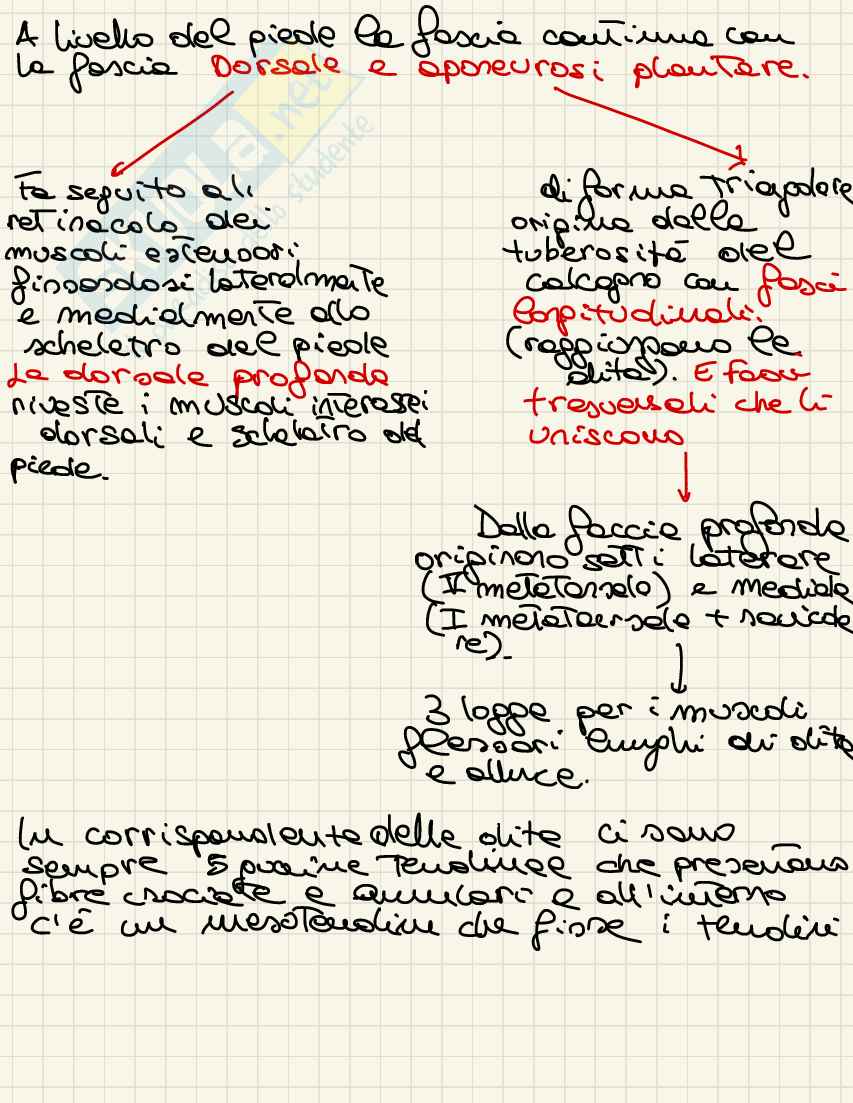 A livello del piede la fascia continua con
la fascia Dorsale e aponeurosi plantare.
Fa seguito al
retinacolo dei
muscoli estensori
fissandosi lateralmente
e medialmente allo
scheletro del piede
La dorsale profonda
riveste i muscoli interossei
dorsali e scheletro del
piede.
di forma triangolare
origina dalla
tuberosità del
calcagno con fasci
longitudinali.
(raggiungono le
dita). E fasci
trasversali che li
uniscono
Dalla faccia profonda
originano setti laterare
(V metatarsale) e mediale
(I metatarsale + navicola
re).
3 logge per i muscoli
flessori lunghi di dita
e alluce.
In corrispondenza delle dita ci sono
sempre 5 guaine tendinee che presentano
fibre crociate e anulari e all'interno
c'è un mesotendine che fissa i tendini